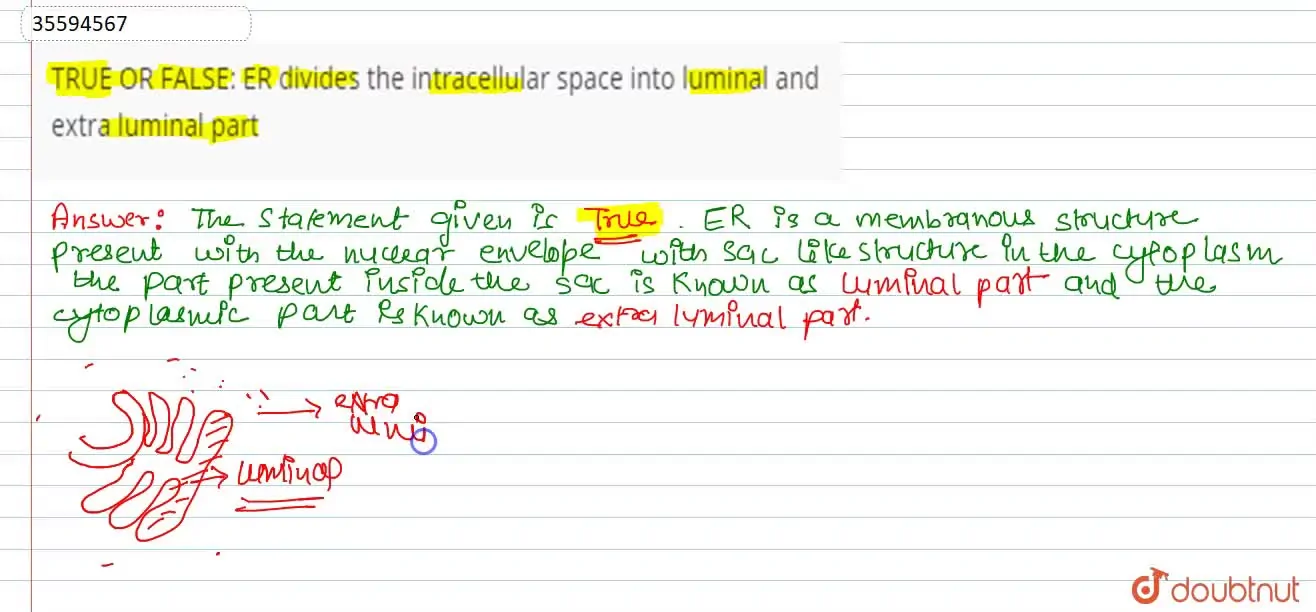 35594567
TRUE OR FALSE: ER divides the intracellular space into luminal and
extra luminal part
Answer: The Statement given is True. ER is a membranous structure
present with the nuclear envelope with sac like structure in the cytoplasm
the part present inside the sac is known as luminal part and the
cytoplasmic part is known as extra luminal part.
extra
luminal
doubtnut